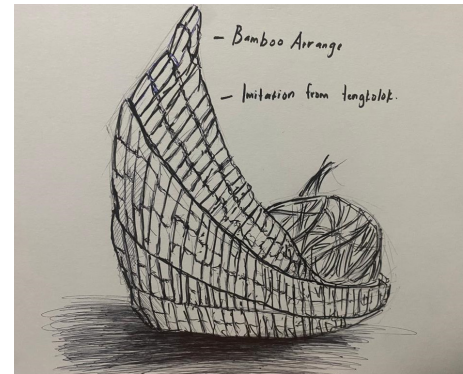 - Bamboo Arrange
- Imitation from tengkolok.